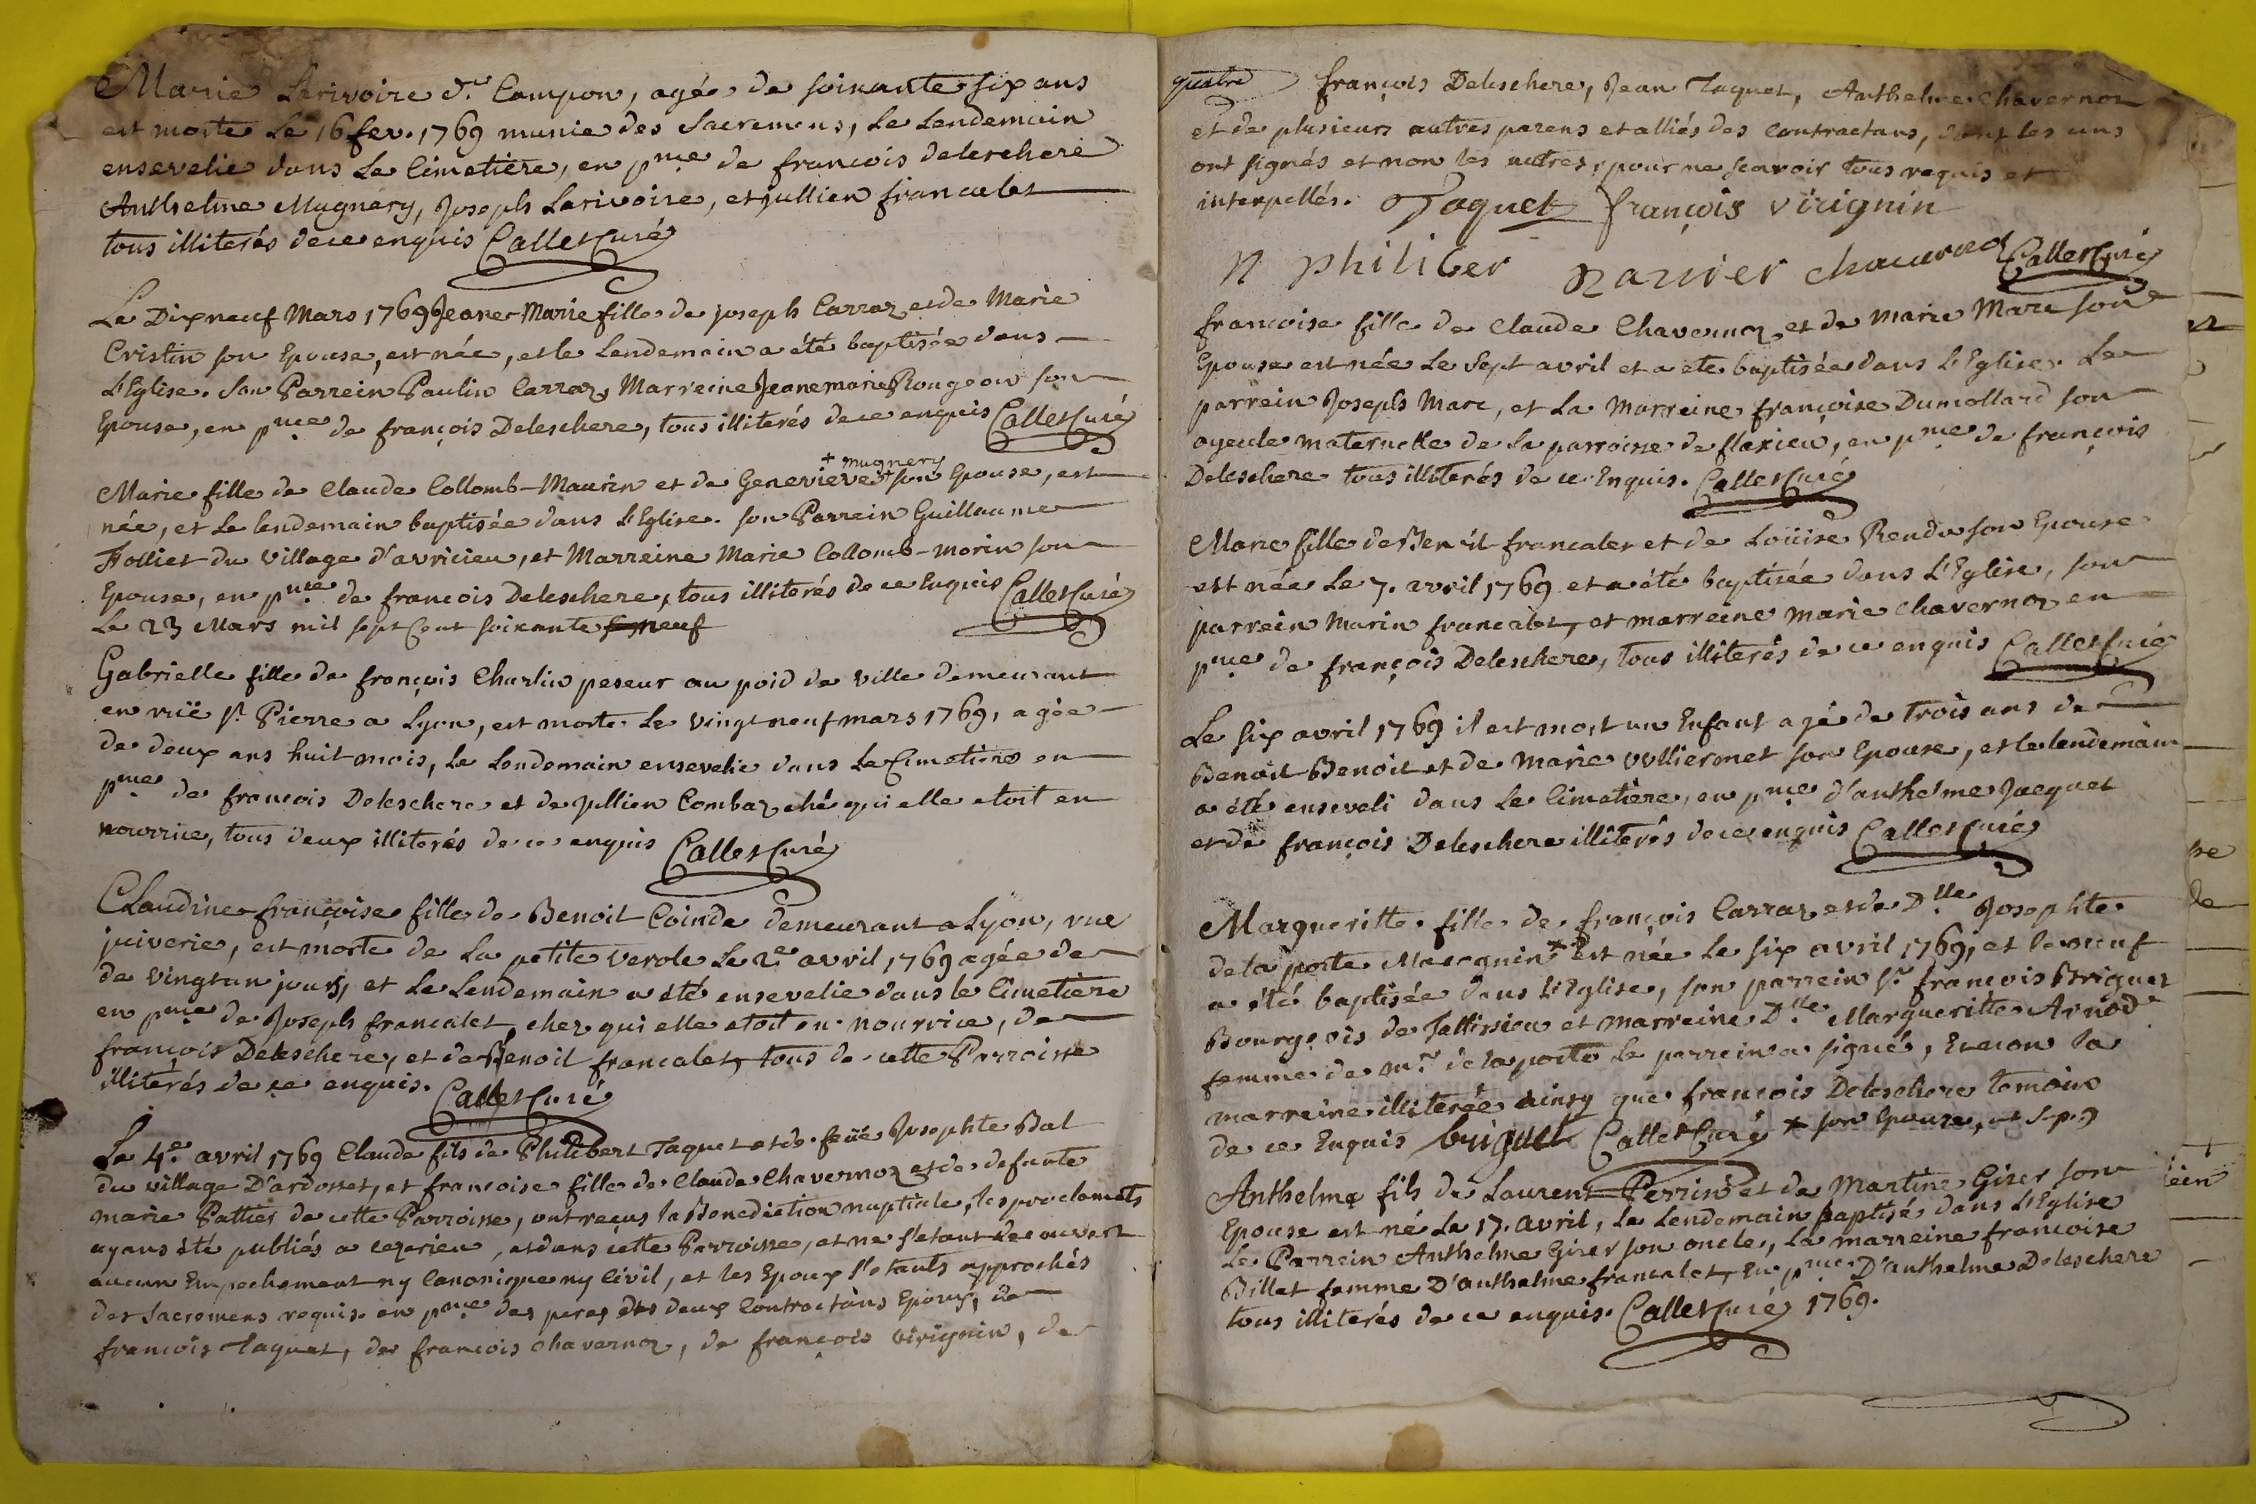 Marie Larivoire d.te Campon, agée de soixante six ans
est morte Le 16 fev. 1769 munie des Sacremens, Le Lendemain
ensevelie dans Le Cimetière, en pnce de francois deleschere
Anthelme Mugnery, Joseph Larivoire, et jullien francalet
tous illiterés de ce enquis Callet Curé
Le Dixneuf Mars 1769 Jeane-Marie fille de joseph Carraz et de Marie
Cristin son Epouse, est née, et le Lendemain a été baptisée dans
L'Eglise. Son Parrein Paulin Carraz, Marreine Jeanemarie Rougeou son
Epouse, en pnce de françois Deleschere, tous illiterés de ce enquis Callet Curé
+ mugnery
Marie fille de Claude Collomb-Maurin et de Genevieve + son Epouse, est
née, et Le lendemain baptisée dans L'Eglise. son Parrein Guillaume
Folliet du village d'avricieu, et Marreine Marie Collomb-morin son
Epouse, en pnce de francois Deleschere, tous illiterés de ce Enquis Callet Curé
Le 23 Mars mil sept Cent soixante neuf
Gabrielle fille de françois Charlin peseur au poid de ville demeurant
en ruë s.t Pierre a Lyon, est morte Le vingt neuf mars 1769, agée
de deux ans huit mois, Le Lendemain ensevelie dans Le Cimetière en
pnce de francois Deleschere et de jullien Combaz ché qui elle etoit en
nourrice, tous deux illiterés de ce enquis Callet Curé
Claudine-françoise fille de Benoit Coinde demeurant a Lyon, rue
juiverie, est morte de La petite verole Le 2.e avril 1769 agée de
de vingt un jours, et Le Lendemain a été ensevelie dans le Cimetière
en pnce de Joseph francalet, chez qui elle etoit en nourrice, de
françois Deleschere, et de Benoit francalet, tous de cette Parroisse
illiterés de ce enquis. Callet Curé
Le 4.e avril 1769 Claude fils de Philibert Taquet et de feüe Josephte Bal
du village D'ardosset, et francoise fille de Claude Chavernoz et de defunte
marie Pattier de cette Parroisse, ont reçus la Benediction nuptiale, les proclamats
ayans été publiés a cezerieu, et dans cette Parroisse, et ne s'etant decouvert
aucun Empechement ny Canonique ny Civil, et les Epoux s'etants approchés
des Sacremens requis. en pnce des peres des deux Contractans Epoux, de
françois Taquet, de francois chavernoz, de françois virignin, de
quatre françois Deleschere, Jean Taquet, Anthelme Chavernoz
et de plusieurs autres parens et alliés des Contractans, dont les uns
ont signés et non les autres, pour ne scavoir tous requis et
interpellés. Taquet françois virignin
N philiber Chavernod Callet Curé
francoise fille de Claude Chavernoz et de Marie Marc son
Epouse est née Le sept avril et a ete baptisée dans L'Eglise. Le
parrein Joseph Marc, et La Marreine françoise Dumollard son
ayeule maternelle de La parroisse de flaxieu, en pnce de françois
Deleschere tous illiterés de ce Enquis. Callet Curé
Marie fille de Benoit francalet et de Loüise Rendu son Epouse
est née Le 7. avril 1769 et a été baptisée dans L'Eglise, son
parrein Marin francalet, et marreine marie Chavernoz en
pnce de françois Deleschere, Tous illiterés de ce enquis Callet Curé
Le six avril 1769 il est mort un Enfant agé de Trois ans de
Benoit Benoit et de Marie vulliermet son Epouse, et le lendemain
a été enseveli dans Le Cimetière, en pnce d'anthelme Jacquet
et de françois Deleschere illiterés de ce enquis Callet Curé
Margueritte fille de françois Carraz et de Dlle Josephte
de la porte Marcgnin * est née Le six avril 1769, et Le neuf
a été baptisée dans L'Eglise, son parrein s.r francois Briguet
Bourgeois de Tallissieu et marreine Dlle Margueritte Arnod
femme de m.r de la porte Le parrein a signé, Et non la
marreine illiterée ainsy que françois Deleschere temoin
de ce Enquis briguet Callet Curé * son Epouse,
Anthelme fils de Laurent Perrin et de Martine Girer son
Epouse est né Le 17. avril, Le Lendemain baptisé dans L'Eglise
Le Parrein Anthelme Girer son oncle, La marreine francoise
Billet femme D'anthelme francalet, En pnce D'anthelme Deleschere
tous illiterés de ce enquis. Callet Curé 1769.